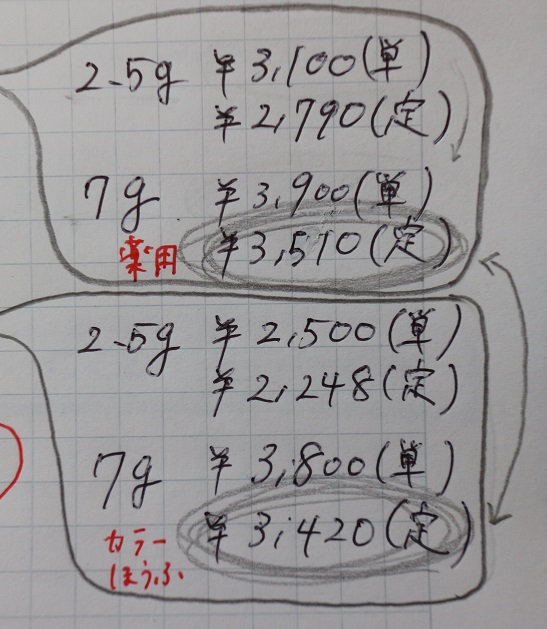 2.5g ¥3,100(単)
¥2,790(定)
7g ¥3,900(単)
薬用 ¥3,510(定)
2.5g ¥2,500(単)
¥2,248(定)
7g ¥3,800(単)
カラー ¥3,420(定)
ほうふ